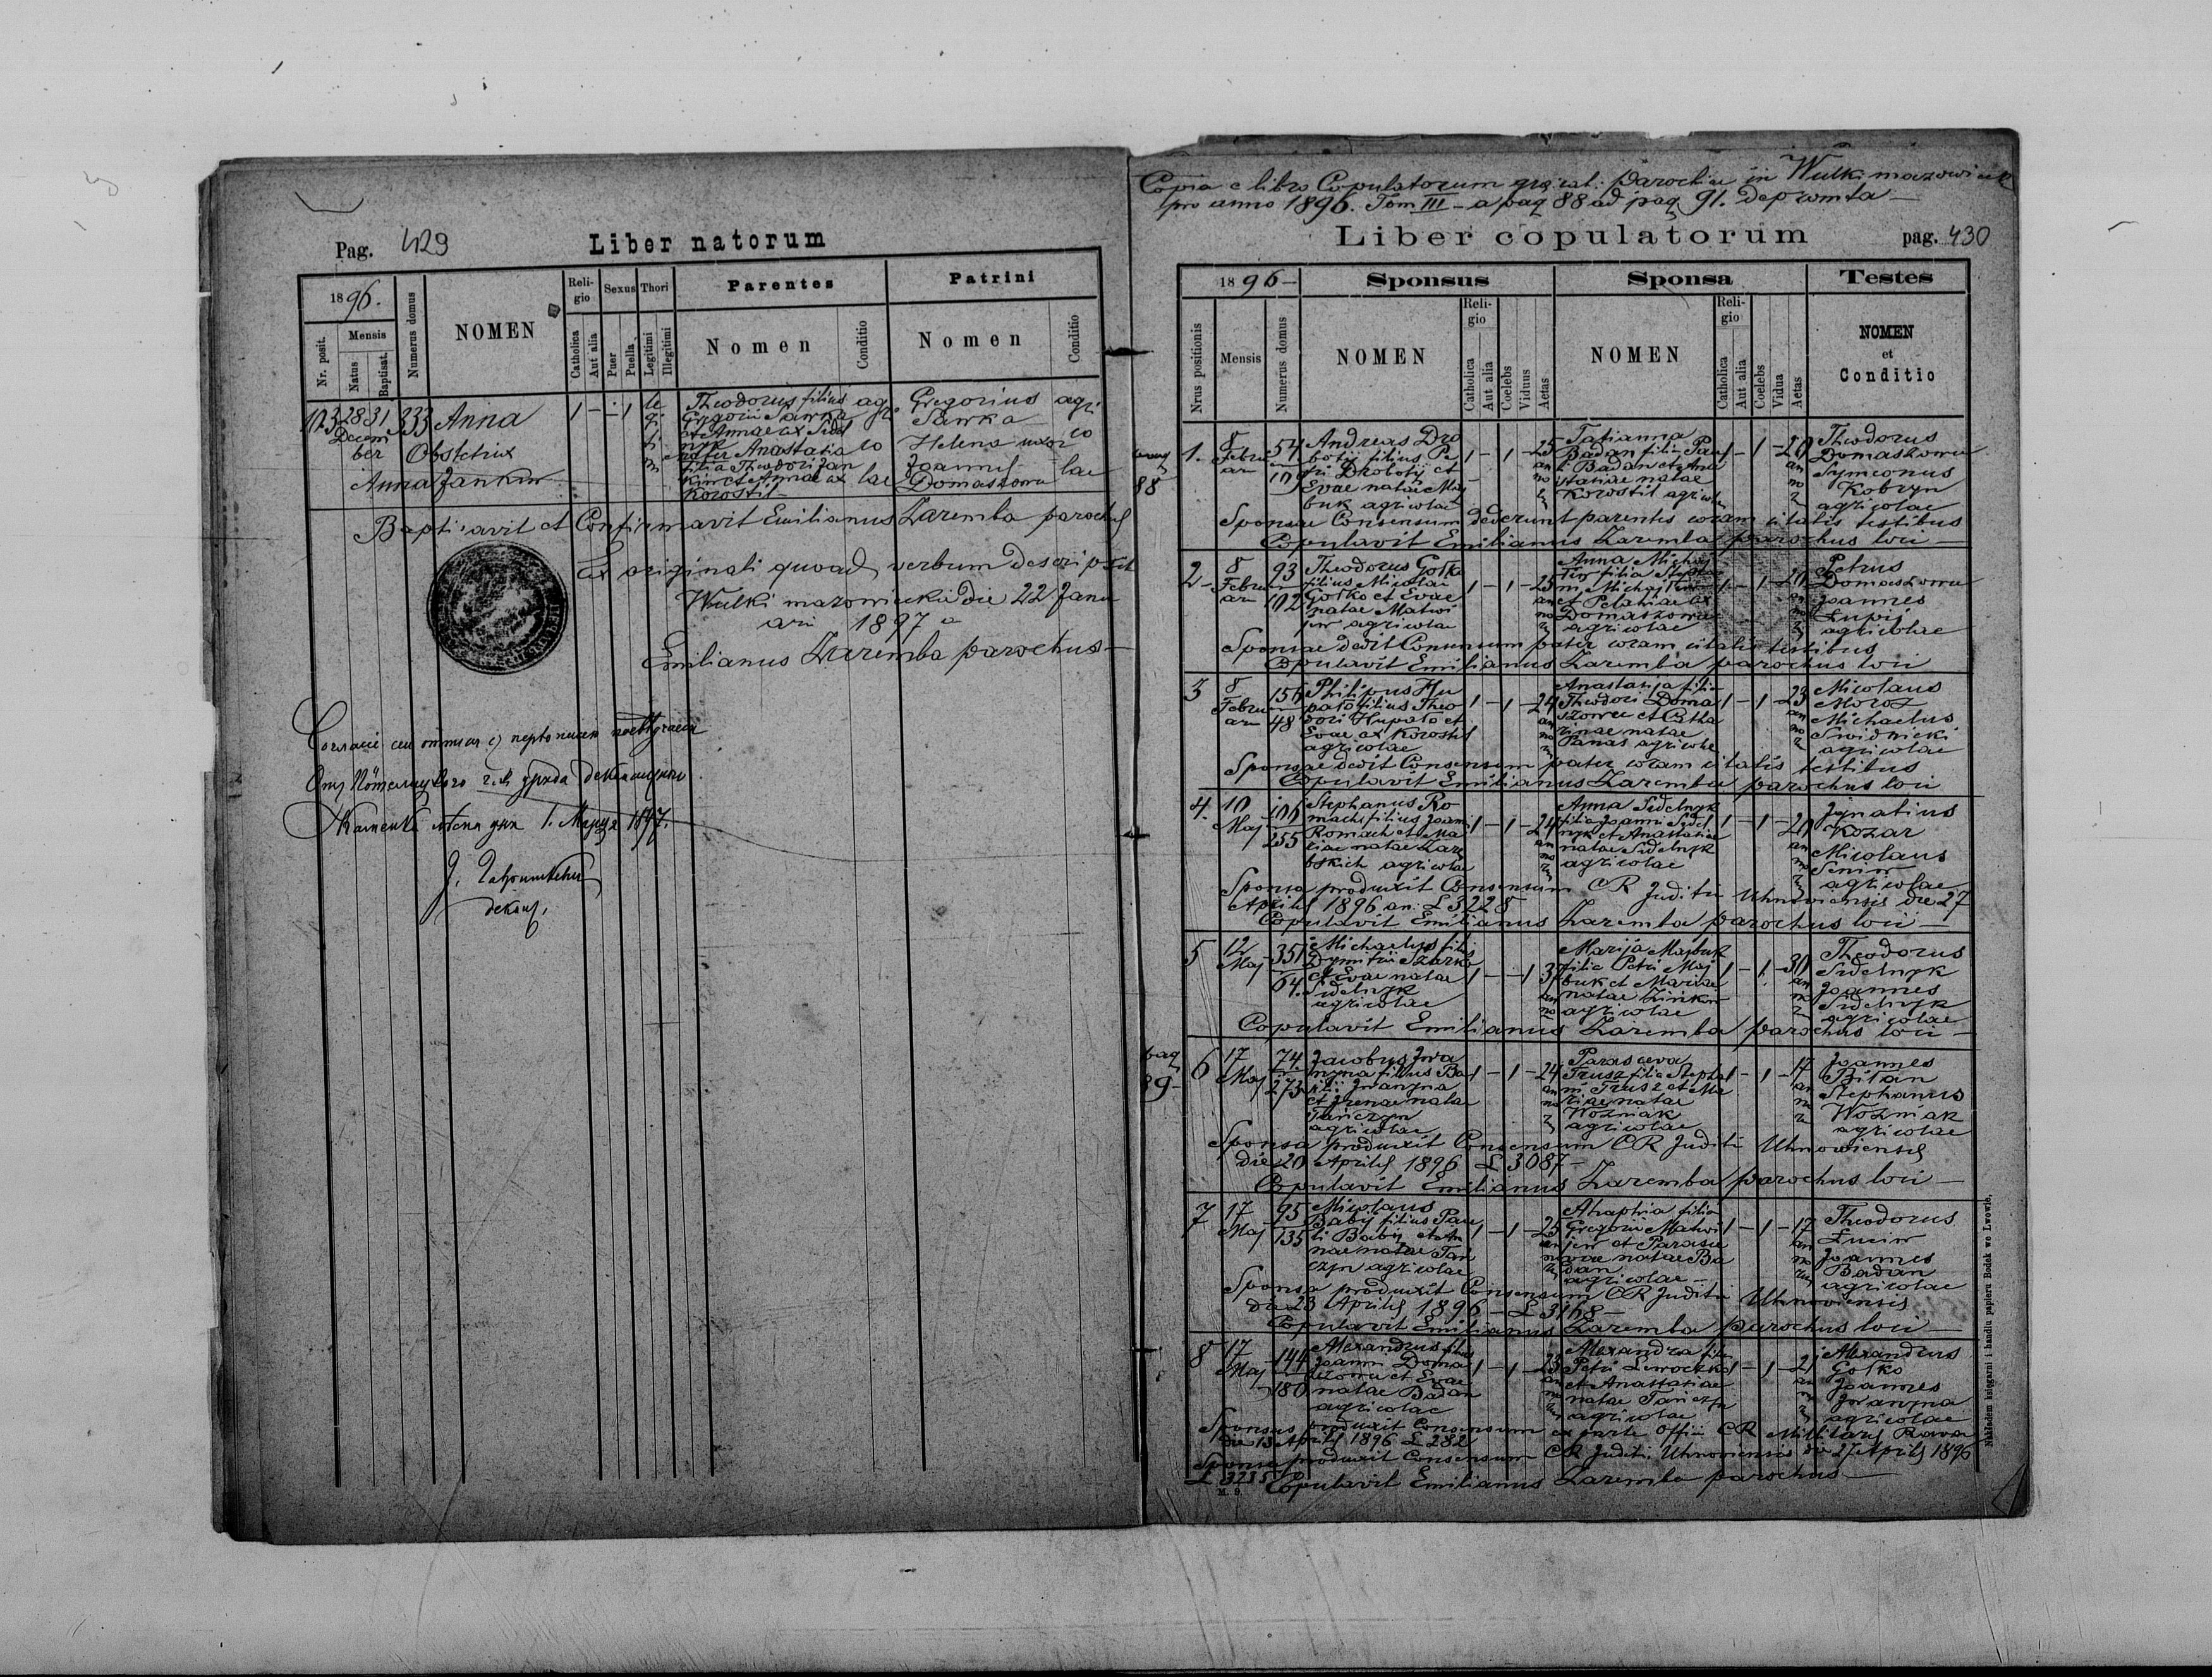 Pag. 429
Liber natorum
1896.
Nr. posit.
Mensis
Natus
Baptisat.
Numerus domus
NOMEN
Religio
Catholica
Aut alia
Sexus
Puer
Puella
Thori
Legitimi
Illegitimi
Parentes
Nomen
Conditio
Patrini
Nomen
Conditio
103 28 31 333 Anna 1 – – 1
Decem
ber
Obstetrix
Anna Jankiw
legitimi
Theodorus filius
Gregorii Sawka
et Annae ex Sidel
nyk
mater Anastasia
filia Theodori Jan
kiw et Annae ex
Korostil
agricolae
Gregorius
Sawka
Helena uxor
Joannis
Domaszowa
agricolae
Baptisavit et Confirmavit Emilianus Zaremba parochus
Ex originali quoad verbum descripsit
Wulki mazowieckie die 22 Janu
arii 1897
Emilianus Zaremba parochus
1. Марця 1897.
декан.
Copia e libro Copulatorum gr. cat. Parochiae in Wulki mazowieckie
pro anno 1896. Tom III – a pag 88 ad pag 91. depromta –
Liber copulatorum
pag. 430
1896 –
Nrus positionis
Mensis
Numerus domus
Sponsus
NOMEN
Religio
Catholica
Aut alia
Coelebs
Viduus
Aetas
Sponsa
NOMEN
Religio
Catholica
Aut alia
Coelebs
Vidua
Aetas
Testes
NOMEN
et
Conditio
88
1. 8 Februar 54 109
Andreas Dro
botij filius Pe
tri Drobotij et
Evae natae Maj
buk agricolae
1 – 1 – 25
Tatianna
Badan filia Pau
li Badan et Ana
stasiae natae
Korostil agricolae
1 – 1 – 20
Theodorus
Domaszowa
Symeonus
Kobryn
agricolae
Sponsae Consensum dederunt parentes coram citatis testibus
Copulavit Emilianus Zaremba parochus loci –
2 – 8 Februar 93 102
Theodorus Gosko
filius Nicolai
Gosko et Evae
natae Matwi
jiw agricolae
1 – 1 – 25
Anna
filia Stepha
ni
et Pelahiae ex
Domaszowa
agricolae
1 – 1 – 20
Petrus
Domaszowa
Joannes
Łupij
agricolae
Sponsae dedit Consensum pater coram citatis testibus
Copulavit Emilianus Zaremba parochus loci
3 8 Februar 156 48
Philipus Hu
pało filius Theo
dori Hupało et
Evae ex Korostil
agricolae
1 – 1 – 24
Anastasija filia
Theodori Doma
szowa et Catha
rinae natae
Panas agricolae
1 – 1 23
Nicolaus
Moroz
Michaelus
Swidnicki
agricolae
Sponsae dedit Consensum pater coram citatis testibus
Copulavit Emilianus Zaremba parochus loci
4. 10 Maj 106 255
Stephanus Ro
mach filius Joanni
Romach et Ma
riae natae Zare
bskich agricolae
1 – 1 – 24
Anna Sidelnyk
filia Joanni Sidel
nyk et Anastasiae
natae Sidelnyk
agricolae
1 – 1 – 20
Ignatius
Kozar
Nicolaus
Seniw
agricolae
Sponsa produxit Consensum CR Juditii Uhnowiensis die 27
Aprilis 1896 an: L 3228
Copulavit Emilianus Zaremba parochus loci –
5 12 Maj 351 64.
Michaelus filius
Dymitrii Szarko
et Evae natae
Sidelnyk
agricolae
1 – – 1 37
Marija Majbuk
filia Petri Maj
buk et Mariae
natae Zinkiw
agricolae
1 – 1 – 30
Theodorus
Sidelnyk
Joannes
Sidelnyk
agricolae
Copulavit Emilianus Zaremba parochus loci –
pag
89 –
6 17 Maj 74. 273
Jacobus Iwa
nyna filius Ba
silii Iwanyna
et Irenae natae
Tanczyn
agricolae
1 – 1 – 24
Parascewa
Trusz filia Stepha
ni Trusz et Ma
riae natae
Wozniak
agricolae
1 – 1 – 17
Joannes
Bitan
Stephanus
Wozniak
agricolae
Sponsa produxit Consensum CR Juditii Uhnowiensis
die 20 Aprilis 1896 L 3087 –
Copulavit Emilianus Zaremba parochus loci –
7 17 Maj 95 135
Nicolaus
Babij filius Pau
li Babij et An
nae natae Tan
czyn agricolae
1 – 1 – 25
Ahaphia filia
Gregorii Matwi
jiw et Parasce
wae natae Ba
dan
agricolae –
1 – 1 – 17
Theodorus
Łuciw
Joannes
Badan
agricolae
Sponsa produxit Consensum CR Juditii Uhnowiensis
die 23 Aprilis 1896 – L 3168 –
Copulavit Emilianus Zaremba parochus loci –
8 17 Maj 144 180
Alexandrus filius
Joanni Doma
szowa et Evae
natae Badan
agricolae
1 – 1 – 23
Alexandra filia
Petri Lewoczko
et Anastasiae
natae Tanczyn
agricolae
1 – 1 – 21
Alexandrus
Gosko
Joannes
Iwanyna
agricolae
Sponsus produxit Consensum ex parte Officii CR Militaris Rawa
die 13 Aprilis 1896 L 282
Sponsa produxit Consensum CR Juditii Uhnowiensis die 27 Aprilis 1896
L 3235 Copulavit Emilianus Zaremba parochus –
M. 9.
Nakładem księgarni i handlu papieru Bodek we Lwowie.